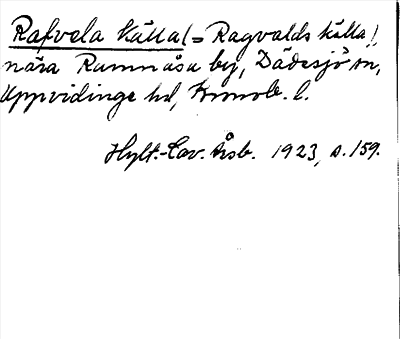 Rafvela källa (= Ragvalds källa,)
nära Rumnåsa by, Dädesjö sn,
Uppvidinge hd, Kronob. l.
Hylt.-Cav. Årsb. 1923, s. 159.